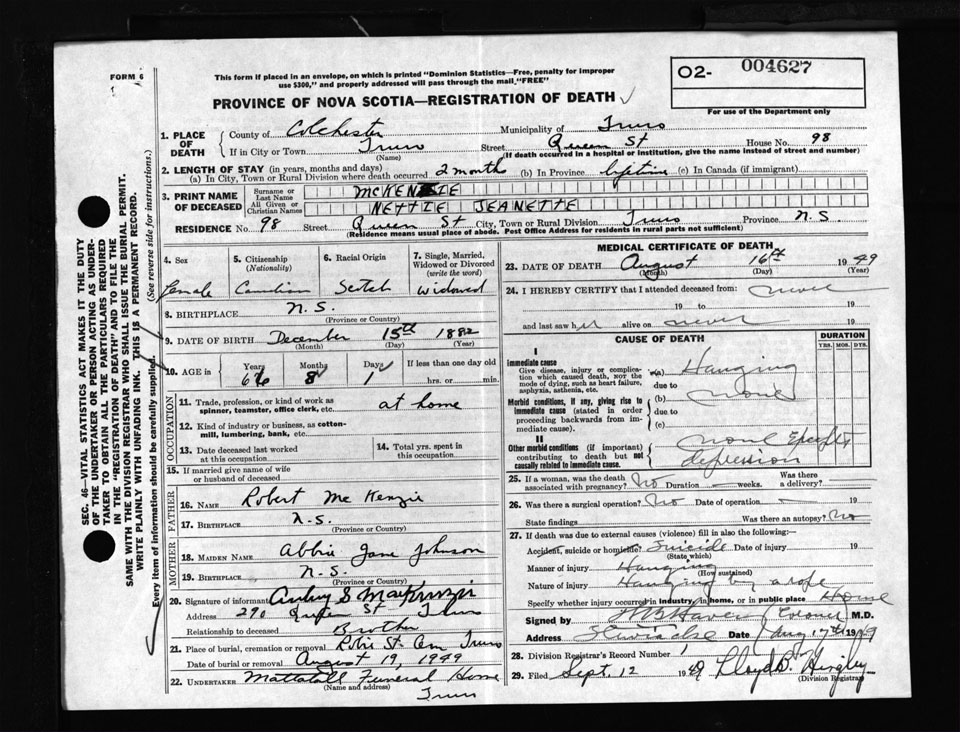 FORM 6
This form if placed in an envelope, on which is printed "Dominion Statistics—Free, penalty for improper
use $300," and properly addressed will pass through the mail "FREE"
O2- 004627
For use of the Department only
PROVINCE OF NOVA SCOTIA—REGISTRATION OF DEATH
1. PLACE OF DEATH
County of Colchester Municipality of Truro
If in City or Town Truro Street Queen St House No. 98
(Name) (If death occurred in a hospital or institution, give the name instead of street and number)
2. LENGTH OF STAY (in years, months and days)
(a) In City, Town or Rural Division where death occurred 2 months (b) In Province lifetime (c) In Canada (if immigrant)
3. PRINT NAME OF DECEASED
Surname or Last Name MCKENZIE
All Given or Christian Names NETTIE JEANETTE
RESIDENCE No. 98 Street Queen St City, Town or Rural Division Truro Province N.S.
(Residence means usual place of abode. Post Office Address for residents in rural parts not sufficient)
4. Sex
female
5. Citizenship (Nationality)
Canadian
6. Racial Origin
Scotch
7. Single, Married, Widowed or Divorced (write the word)
Widowed
8. BIRTHPLACE N.S.
(Province or Country)
9. DATE OF BIRTH December 15th 1882
(Month) (Day) (Year)
10. AGE in Years Months Days If less than one day old
66 8 1 hrs. or min.
OCCUPATION
11. Trade, profession or kind of work as spinner, teamster, office clerk, etc. at home
12. Kind of industry or business, as cotton-mill, lumbering, bank, etc.
13. Date deceased last worked at this occupation
14. Total yrs. spent in this occupation
15. If married give name of wife or husband of deceased
FATHER
16. NAME Robert McKenzie
17. BIRTHPLACE N.S.
(Province or Country)
MOTHER
18. MAIDEN NAME Abbie Jane Johnson
19. BIRTHPLACE N.S.
(Province or Country)
20. Signature of informant S MacKenzie
Address 290 St Truro
Relationship to deceased Brother
21. Place of burial, cremation or removal Robie St. Cem Truro
Date of burial or removal August 19, 1949
22. UNDERTAKER Mattatall Funeral Home
(Name and address)
Truro
MEDICAL CERTIFICATE OF DEATH
23. DATE OF DEATH August 16th 1949
(Month) (Day) (Year)
24. I HEREBY CERTIFY that I attended deceased from: never
19 to 19
and last saw her alive on never 19
CAUSE OF DEATH
DURATION
YRS. MOS. DYS.
I
Immediate cause
Give disease, injury or complication which caused death, NOT the mode of dying, such as heart failure, asphyxia, asthenia, etc.
(a) Hanging
due to
Morbid conditions, if any, giving rise to immediate cause (stated in order proceeding backwards from immediate cause).
(b) none
due to
(c)
II
Other morbid conditions (if important) contributing to death but not causally related to immediate cause.
none Except
depression
25. If a woman, was the death associated with pregnancy? No Duration weeks. Was there a delivery?
26. Was there a surgical operation? No Date of operation 19
State findings Was there an autopsy? No
27. If death was due to external causes (violence) fill in also the following:—
Accident, suicide or homicide? Suicide Date of injury 19
(State which)
Manner of injury Hanging
(How sustained)
Nature of injury Hanging by a rope
Specify whether injury occurred in industry, in home, or in public place Home
Signed by (Coroner) M.D.
Address Stewiacke Date Aug 17th 1949
28. Division Registrar's Record Number 1
29. Filed Sept. 12 1949 Lloyd B.
(Division Registrar)
SEC. 46—VITAL STATISTICS ACT MAKES IT THE DUTY
OF THE UNDERTAKER OR PERSON ACTING AS UNDER-
TAKER TO OBTAIN ALL THE PARTICULARS REQUIRED
IN THE "REGISTRATION OF DEATH" AND TO FILE THE
SAME WITH THE DIVISION REGISTRAR WHO SHALL ISSUE THE BURIAL PERMIT.
WRITE PLAINLY WITH UNFADING INK. THIS IS A PERMANENT RECORD.
Every item of information should be carefully supplied. (See reverse side for instructions.)